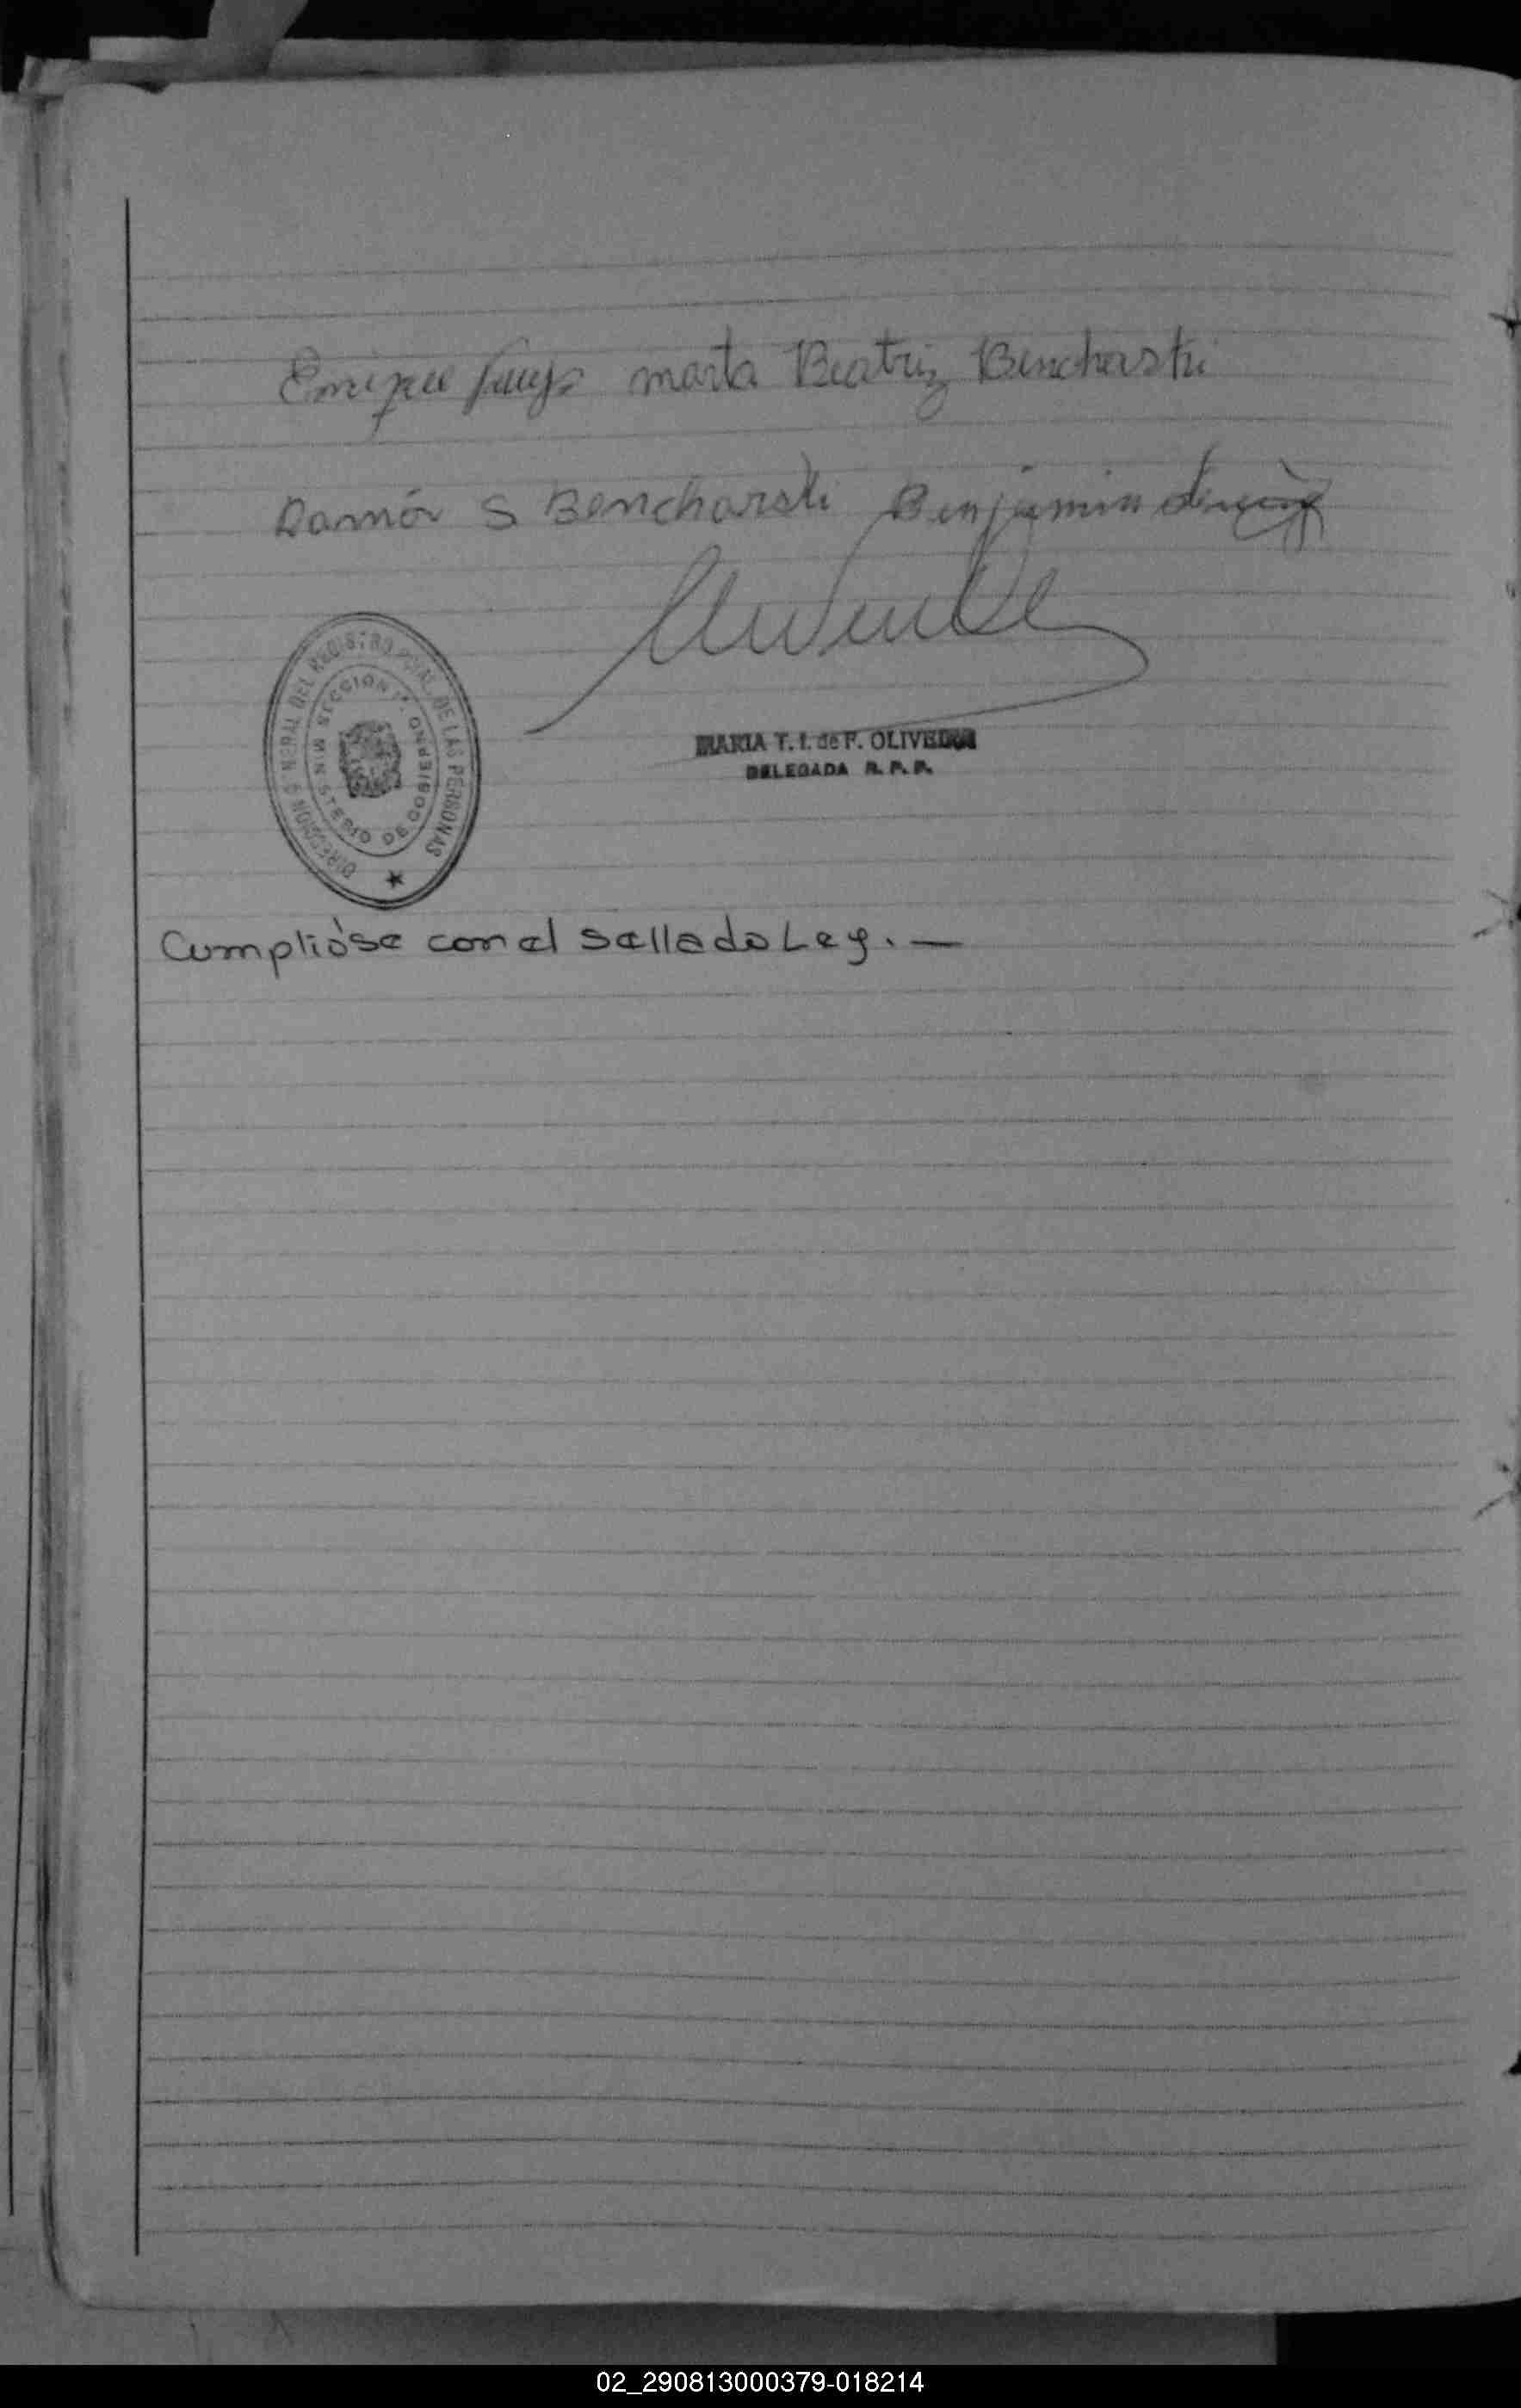 Enrique marta Beatriz Bencharski
Ramón S Bencharski Benjamin
DIRECCION GENERAL DEL REGISTRO PCIAL. DE LAS PERSONAS
MINISTERIO DE GOBIERNO
SECCION 1ª
MARIA T. I. de F. OLIVEIRA
DELEGADA R. P. P.
Cumplióse con el sellado Ley. —
02_290813000379-018214